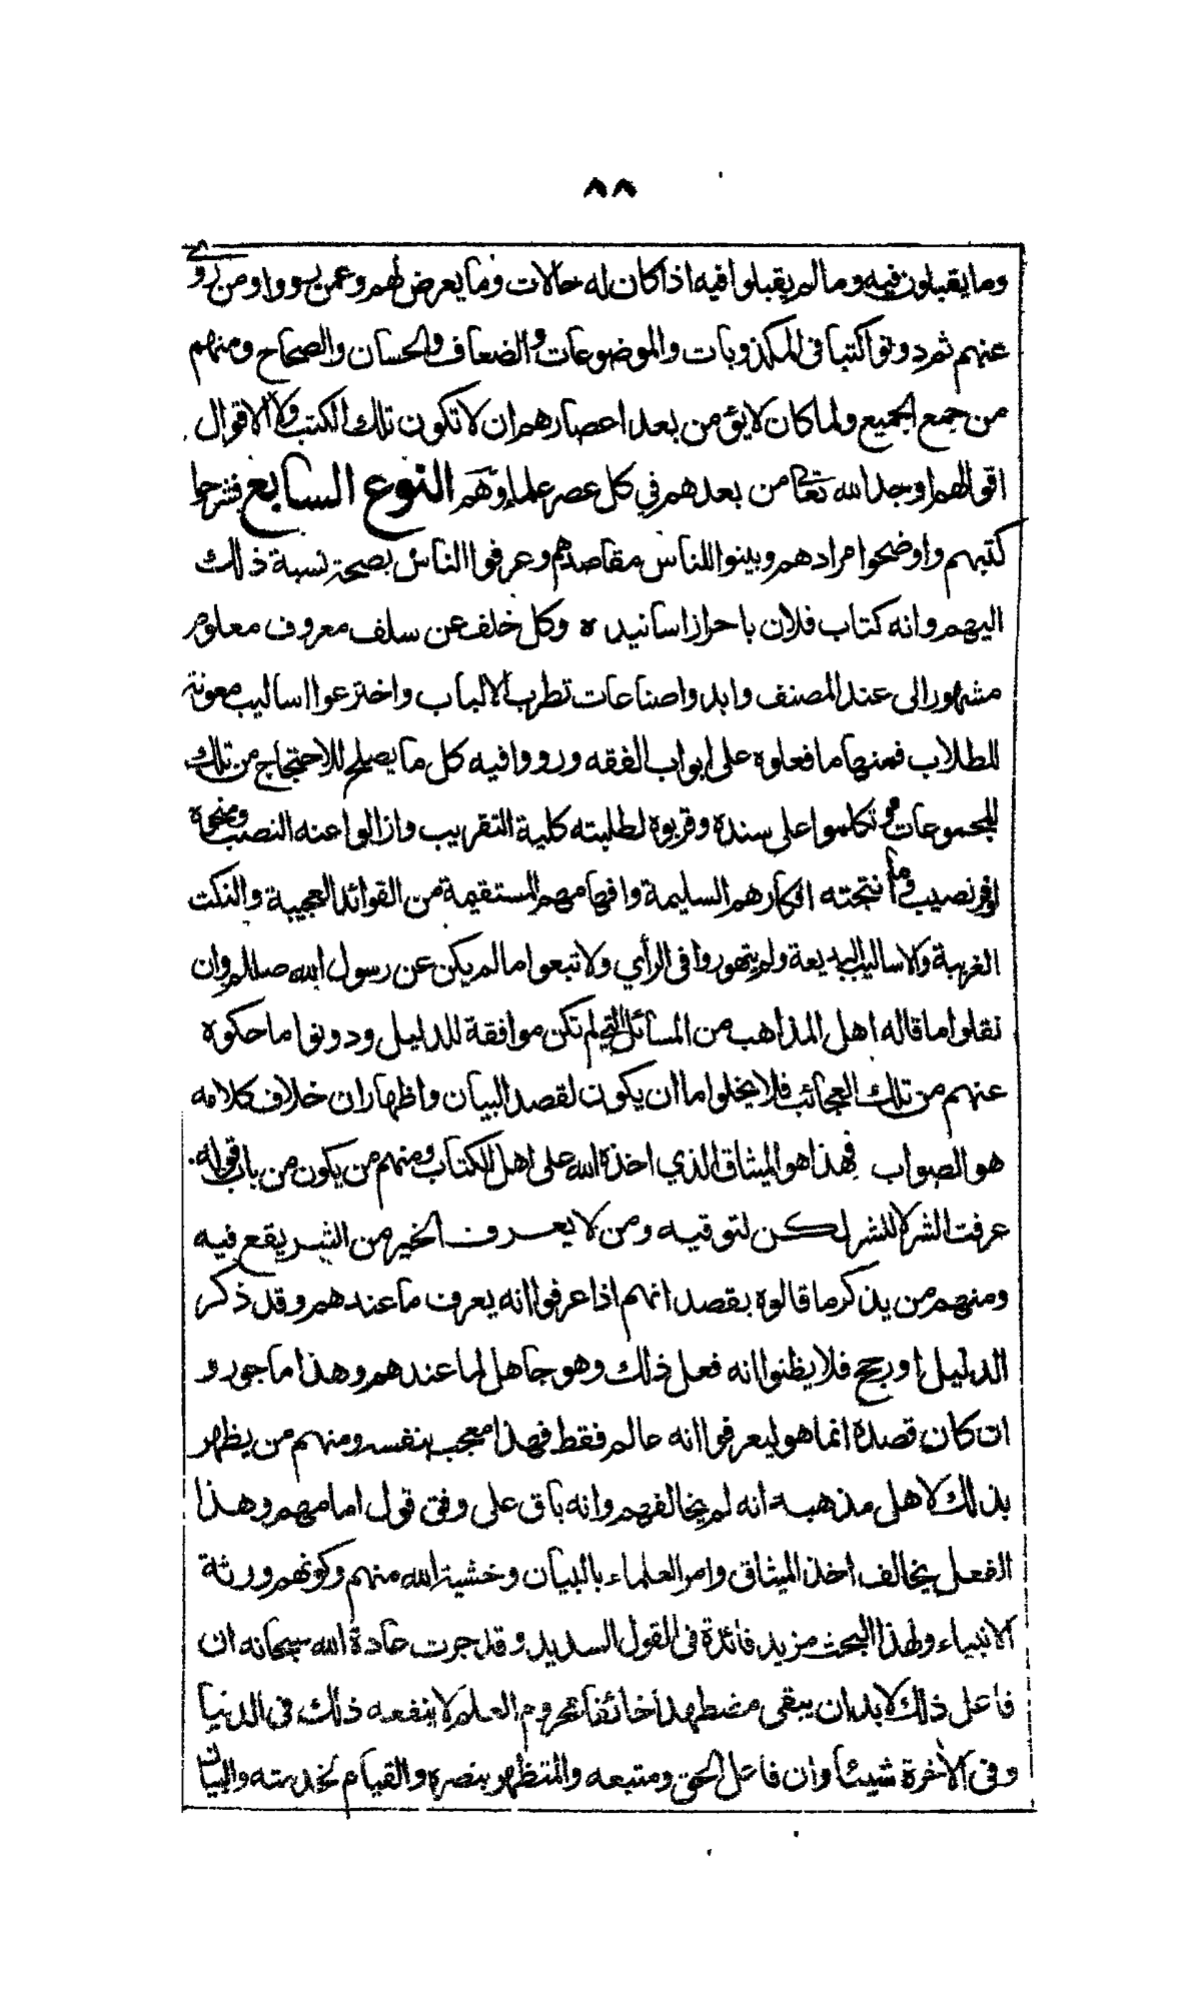 ٨٨
وما يقبلون فيه وما لم يقبلوا فيه اذا كان له حالات وما يعرض لهم وعمن يرووا ومن روى
عنهم ثم دونوا كتبا في المكذوبات والموضوعات والضعاف والحسان والصحاح ومنهم
من جمع الجميع ولما كان لابد من بعد اعصارهم ان لا تكون تلك الكتب ولا الاقوال
اقوالهم اوجد الله تعالى من بعدهم في كل عصر علماء وهم النوع السابع فشرحوا
كتبهم واوضحوا مرادهم وبينوا للناس مقاصدهم وعرفوا الناس بصحة نسبة ذلك
اليهم وانه كتاب فلان باحراز اسانيده وكل خلف عن سلف معروف معلوم
مشهور الى عند المصنف وابدوا صناعات تطرب الالباب واخترعوا اساليب معونة
للطلاب فمنها ما فعلوه على ابواب الفقه ورووا فيه كل ما يصلح للاحتجاج من تلك
المجموعات وتكلموا على سنده وقربوه لطلبته كلية التقريب وازالوا عنه النصب ومنحوه
اوفر نصيب وما انتجته افكارهم السليمة وافهامهم المستقيمة من الفوائد العجيبة والنكت
الغريبة والاساليب البديعة ولم يتهوروا في الرأي ولا تبعوا ما لم يكن عن رسول الله صللم وان
نقلوا ما قاله اهل المذاهب من المسائل التي لم تكن موافقة للدليل ودونوا ما حكوه
عنهم من تلك العجائب فلا يخلوا اما ان يكون لقصد البيان واظهار ان خلاف كلامه
هو الصواب فهذا هو الميثاق الذي اخذه الله على اهل الكتاب ومنهم من يكون من باب قوله
عرفت الشر لا للشر لكن لتوقيه ومن لا يعرف الخير من الشر يقع فيه
ومنهم من يذكر ما قالوه بقصد انهم اذا عرفوا انه يعرف ما عندهم وقد ذكر
الدليل او رجح فلا يظنوا انه فعل ذلك وهو جاهل لما عندهم وهذا ماجور و
ان كان قصده انما هو ليعرفوا انه عالم فقط فهذا معجب بنفسه ومنهم من يظهر
بذلك لاهل مذهبه انه لم يخالفهم وانه باق على وفق قول امامهم وهذا
الفعل يخالف اخذ الميثاق وامر العلماء بالبيان وخشية الله منهم وكونهم ورثة
الانبياء ولهذا البحث مزيد فائدة في القول السديد وقد جرت عادة الله سبحانه ان
فاعل ذلك لابد ان يبقى مضطهدا خائفا محروم العلم لا ينفعه ذلك في الدنيا
وفي الآخرة شيئا وان فاعل الحق ومتبعه والمتظهر بنصره والقيام بخدمته والبيان